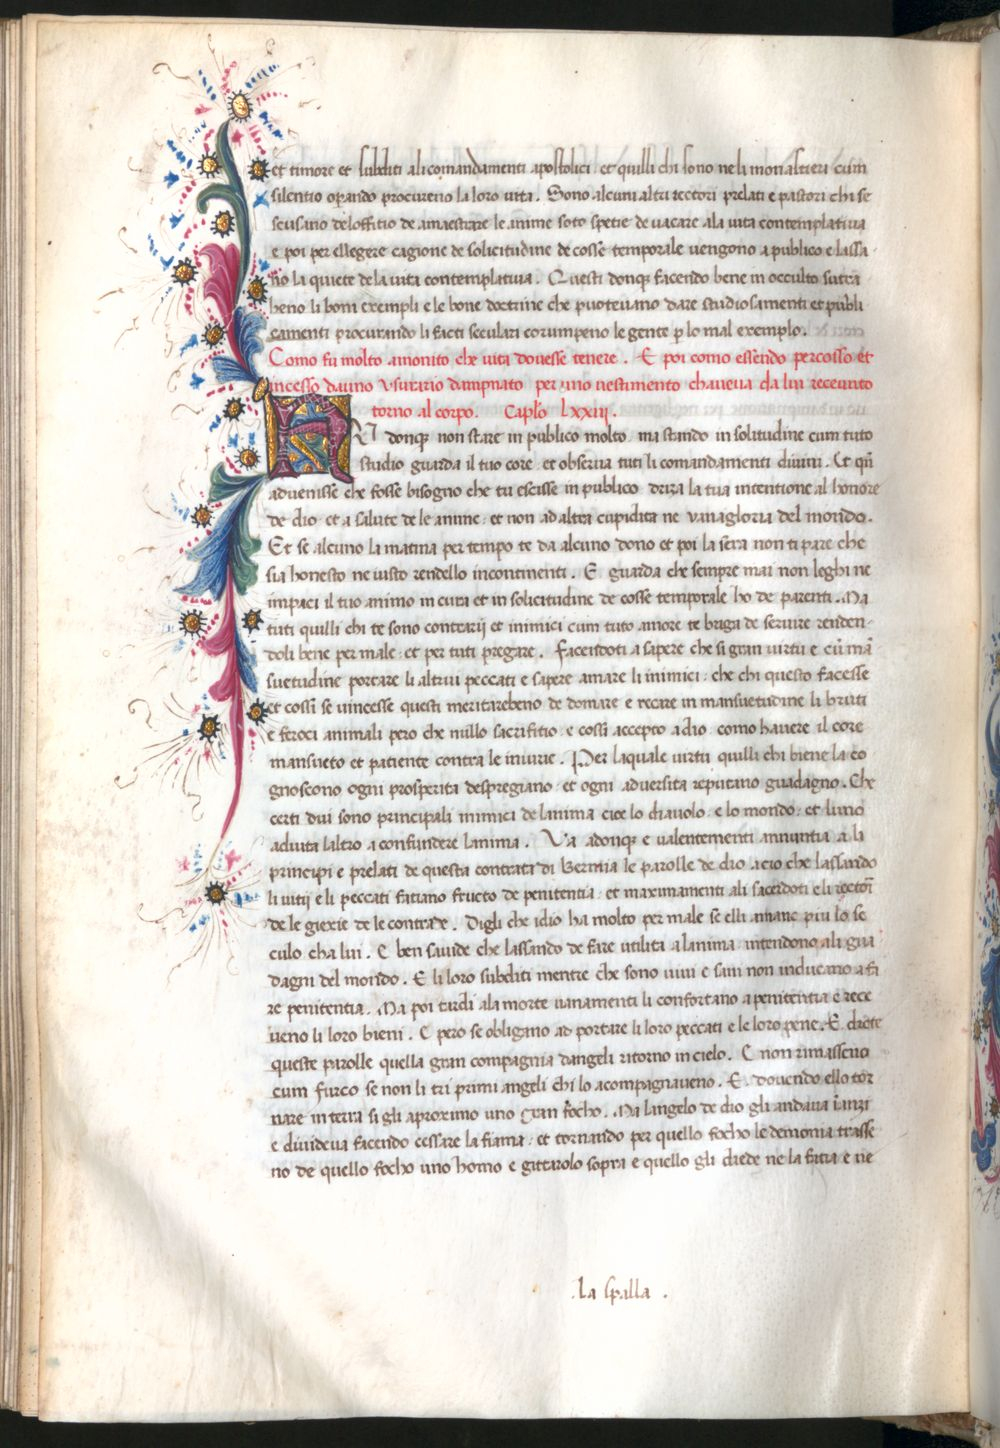 et timore et subditi ali comandamenti apostolici et quilli chi sono neli monastieri cum
silentio oꝑando procureno la loro vita . Sono alcuni altri rectori prelati e pastori chi se
scusano de loffitio de amaestrare le anime soto spetie de vacare ala vita contemplatiua
e poi per ellegere cagione de solicitudine de cosse temporale uengono a publico e lassa
no la quiete de la uita contemplatiua . Questi donqȝ facendo bene in occulto sutra
heno li boni exempli e le bone doctrine che puoteuano dare studiosamenti et publi
camenti procurando li facti seculari corumpeno le gente ꝑ lo mal exemplo .
Como fu molto amonito che uita douesse tenere . E poi como essendo percosso et
incesso da uno vsurario dampnato per uno uestimento chaueua da lui receuuto
torno al corpo . Caplo Lxxiii .
donqȝ non stare in publico molto ma stando in solitudine cum tuto
studio guarda il tuo core et obserua tuti li comandamenti diuini . Et qñ
aduenisse che fosse bisogno che tu escisse in publico driza la tua intentione al honore
de dio et a salute de le anime et non ad altra cupidita ne vanagloria del mondo .
Et se alcuno la matina per tempo te da alcuno dono et poi la sera non ti pare che
sia honesto ne iusto rendello incontinenti . E guarda che sempre mai non leghi ne
impaci il tuo animo in cura et in solicitudine de cosse temporale ho de parenti . Ma
tuti quilli chi te sono contrarij et inimici cum tuto amore te briga de seruire renden-
doli bene per male et per tuti pregare . Facendoti a sapere che si gran uirtu e cũ mã
suetudine portare li altrui peccati e sapere amare li inimici che chi questo facesse
et cossi se uincesse questi meritarebeno de domare e recare in mansuetudine li bruti
e feroci animali pero che nullo sacrifitio e cossi accepto a dio como hauere il core
mansueto et patiente contra le iniurie . Per laquale uirtu quilli chi biene la co
gnoscono ogni prosperita despregiano et ogni aduersita reputano guadagno . Che
certi dui sono principali inimici de lanima cioe lo diauolo e lo mondo et luno
adiuta laltro a confundere lanima . Va adonque e ualentementi annuntia a li
principi e prelati de questa contrata di Bernia le parolle de dio acio che lassando
li uitij e li peccati fatiano fructo de penitentia et maximamenti ali sacerdoti e li rectoȓ
de le giexie de le contrade . Digli che idio ha molto per male se elli amano piu lo se
culo cha lui . E ben sauide che lassando de fare utilita a lanima intendono ali gua
dagni del mondo . E li loro subditi mentre che sono uiui e sani non inducano a fa
re penitentia . Ma poi tardi ala morte uanamenti li confortano a penitentia e rece
ueno li loro bieni . E pero se obligano ad portare li loro peccati e le loro pene . E dicte
queste parolle quella gran compagnia dangeli ritorno in cielo . E non rimasseno
cum furco se non li tri primi angeli chi lo acompagnaueno . E douendo ello tor
nare in terra si gli aproximo uno gran focho . Ma langelo de dio gli andaua ĩanzi
e diuideua facendo cessare la fiama et tornando per quello focho le demonia trasse
no de quello focho uno homo e gittarolo sopra e quello gli diede ne la facia e ne
. la spalla .